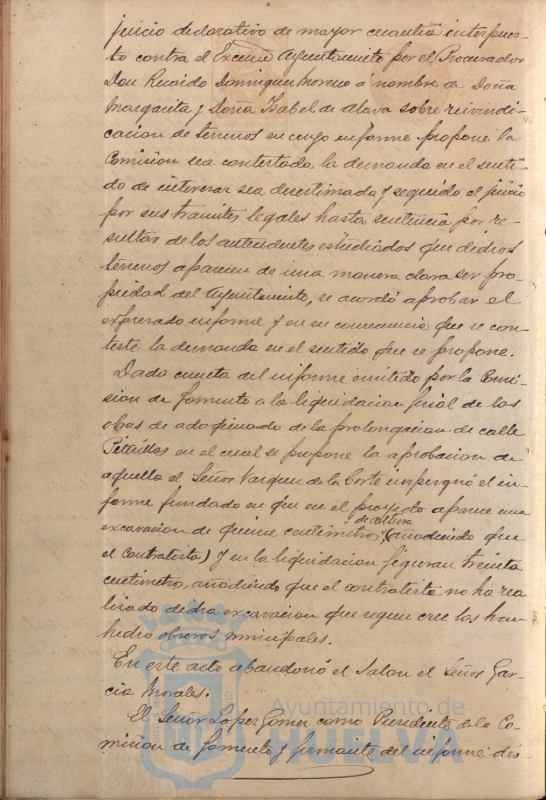 juicio declarativo de mayor cuantia interpues-
to contra el Excmo Ayuntamiento por el Procurador
Don Ruaido Dominguez Moreno á nombre de Doña
Margarita y Doña Isabel de Alava sobre reivindi-
cacion de terrenos en cuyo informe propone la
Comision sea contestada la demanda en el senti-
do de interesar sea desestimada y seguido el juicio
por sus tramites legales hasta sentencia por re-
sultar de los antecedentes estudiados que dichos
terrenos aparecen de una manera clara ser pro-
piedad del Ayuntamiento, se acordó aprobar el
expresado informe y en su consecuencia que se con-
teste la demanda en el sentido que se propone.
Dada cuenta del informe emitido por la Comi-
sion de Fomento a la liquidacion final de las
obras de adoquinado de la prolongacion de calle
en el cual se propone la aprobacion de
aquella el Señor Vazquez de la Corte impugnó el in-
forme fundado en que en el proyecto aparece una
de altura
excavacion de quince centimetros (añadiendo que
el contratista) y en la liquidacion figuran treinta
centimetros, añadiendo que el contratista no ha rea-
lizado dicha excavacion que segun cree las han
hecho obreros municipales.
En este acto abandonó el Salon el Señor Gar-
cia Morales.
El Señor Lopez Gomez como Presidente de la Co-
mision de Fomento y firmante del informe, dis-
Ayuntamiento de
HUELVA